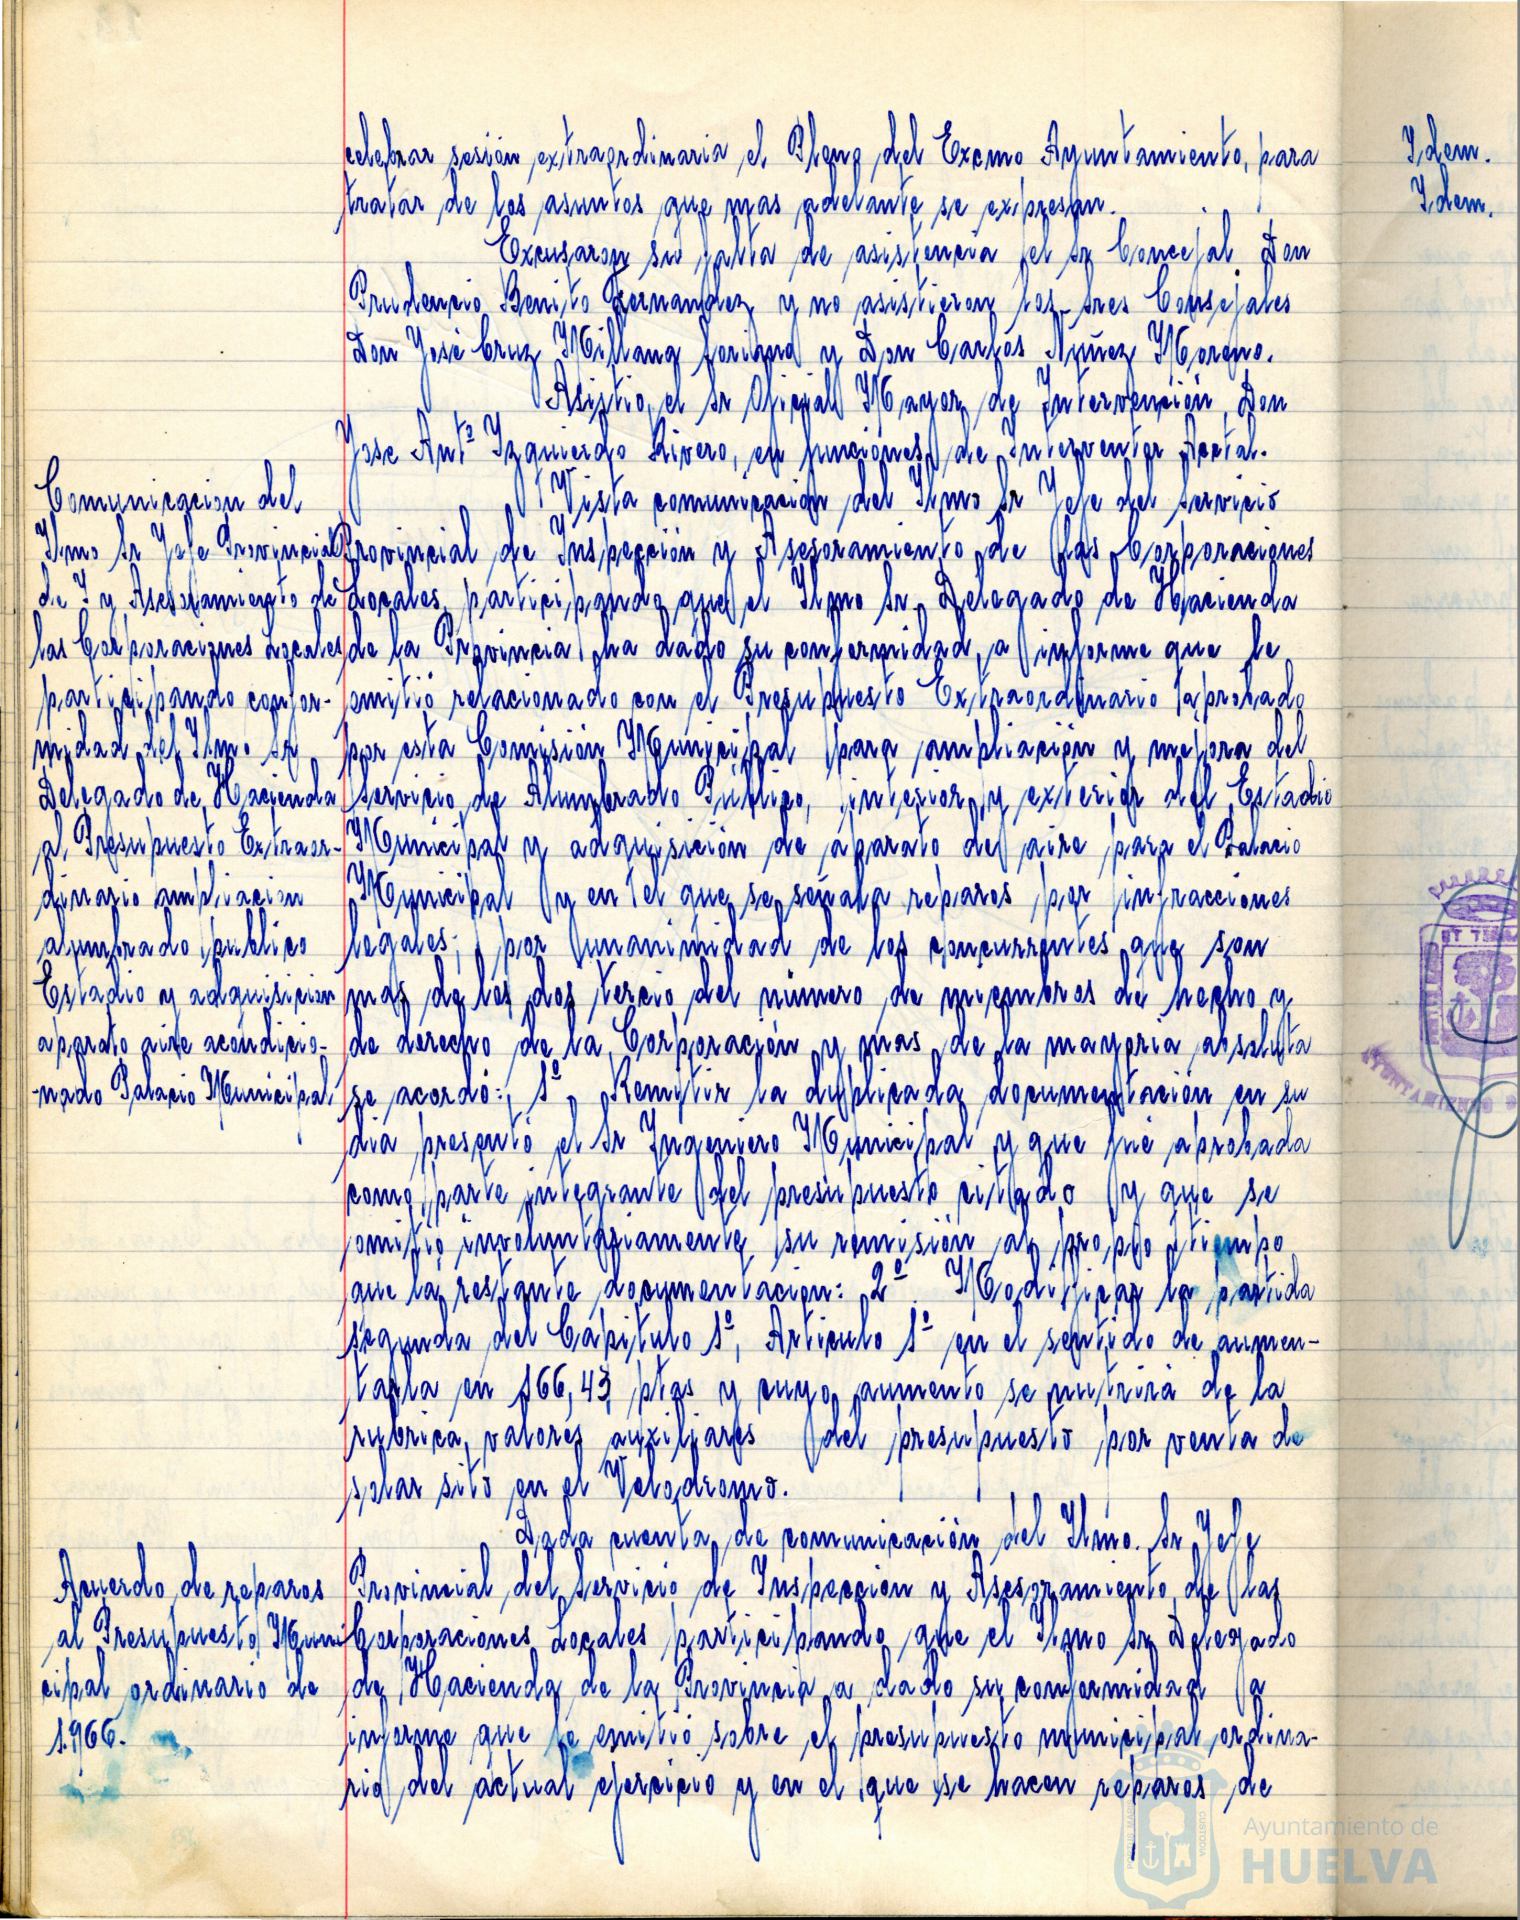 celebrar sesión extraordinaria el Pleno del Excmo Ayuntamiento, para
tratar de los asuntos que mas adelante se expresan.
Excusaron su falta de asistencia el Sr Concejal Don
Prudencio Benito Fernandez y no asistieron los Sres Consejales
Don José Cruz Millana Soriano y Don Carlos Nuñez Moreno.
Asistio, el Sr Oficial Mayor de Intervención, Don
Jose Antº Izquierdo Rivero, en funciones de Interventor Acctal.
Comunicacion del
Ilmo Sr Jefe Provincial
de I y Asesoramiento de
las Corporaciones Locales
participando confor-
midad del Ilmo Sr
Delegado de Hacienda
al Presupuesto Extraor-
dinario ampliacion
alumbrado publico
Estadio y adquisicion
aparato aire acondicio-
-nado Palacio Municipal
Vista comunicación del Ilmo Sr Jefe del Servicio
Provincial de Inspección y Asesoramiento de las Corporaciones
Locales, participando que el Ilmo Sr. Delegado de Hacienda
de la Provincia ha dado su conformidad, a informe que le
emitió relacionado con el Presupuesto Extraordinario aprobado
por esta Comisión Municipal para ampliación y mejora del
Servicio de Alumbrado Público, interior y exterior del Estadio
Municipal y adquisición de aparato de aire para el Palacio
Municipal y en el que se señala reparos por infracciones
legales; por unanimidad de los concurrentes que son
mas de los dos tercio del número de miembros de hecho y
de derecho de la Corporación y mas de la mayoria absoluta
se acordó: 1º Remitir la duplicada documentación en su
dia presentó el Sr Ingeniero Municipal y que fué aprobada
como parte integrante del presupuesto citado y que se
omitió involuntariamente su remisión al propio tiempo
que la restante documentacion: 2º. Modificar la partida
segunda del Capitulo 1º, Articulo 1º en el sentido de aumen-
tarla en 166,43 ptas y cuyo aumento se nutrirá de la
rubrica, valores auxiliares del presupuesto por venta de
solar sito en el Velodromo.
Acuerdo de reparos
al Presupuesto Muni
cipal ordinario de
1.966.
Dada cuenta de comunicación del Ilmo. Sr Jefe
Provincial del Servicio de Inspección y Asesoramiento de las
Corporaciones Locales participando que el Ilmo Sr Delegado
de Hacienda de la Provincia a dado su conformidad a
informe que le emitió sobre el presupuesto municipal ordina-
rio del actual ejercicio y en el que se hacen reparos de
Idem.
Idem.
AYUNTAMIENTO
Ayuntamiento de
HUELVA